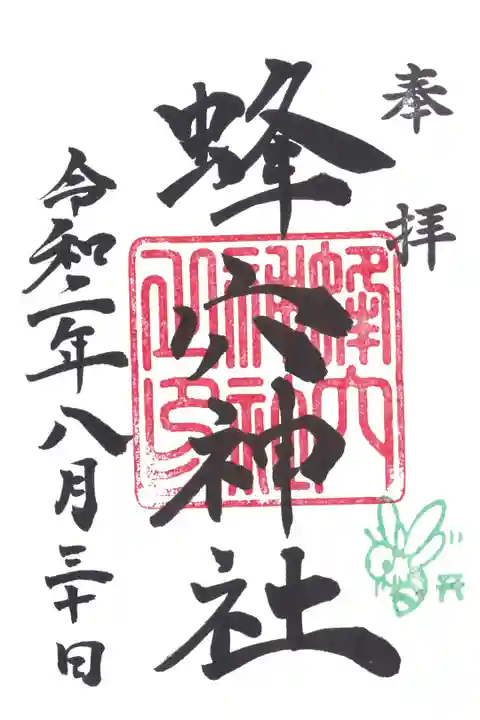 奉拝
蜂穴神社
蜂穴
神社
之印
令和二年八月三十日